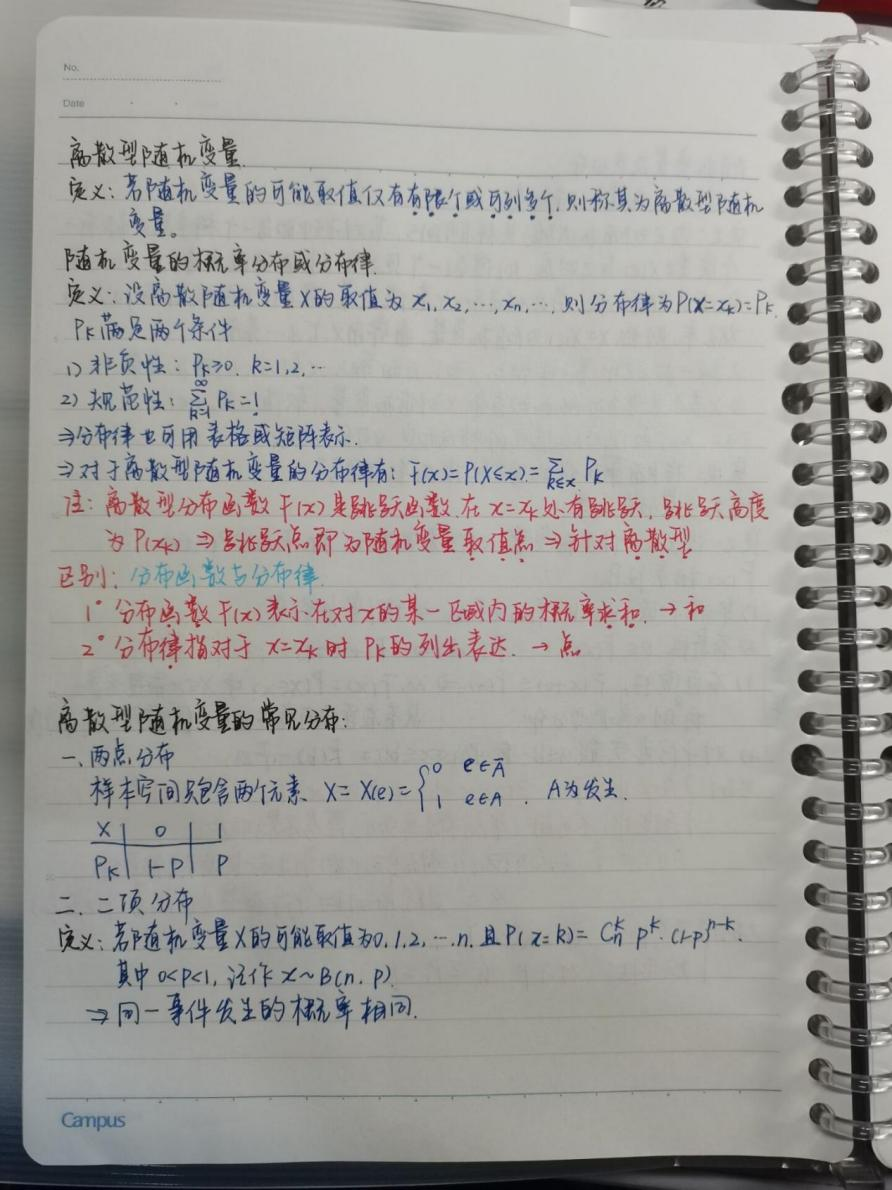 No.
Date
离散型随机变量.
定义：若随机变量的可能取值仅有有限个或可列多个,则称其为离散型随机
变量。
随机变量的概率分布或分布律.
定义：设离散随机变量X的取值为 x₁, x₂, …, xₙ, …. 则分布律为P(X=xₖ)=Pₖ.
Pₖ满足两个条件
1) 非负性：Pₖ≥0. k=1,2,…
2) 规范性：∑_{k=1}^{∞} Pₖ=1.
⇒分布律也可用表格或矩阵表示.
⇒对于离散型随机变量的分布律有：F(x)=P(X≤x)=∑_{k≤x} Pₖ
注：离散型分布函数F(x)是跳跃函数.在x=xₖ处有跳跃，跳跃高度
为P(xₖ) ⇒ 跳跃点即为随机变量取值点 ⇒ 针对离散型
区别：分布函数与分布律.
1° 分布函数F(x)表示在对x的某一区域内的概率求和. → 和
2° 分布律指对于x=xₖ时Pₖ的列出表达. → 点
离散型随机变量的常见分布：
一、两点分布
样本空间只包含两个元素. X=X(e)={0 e∈Ā
1 e∈A . A为发生.
X | 0 | 1
Pₖ | 1-P | P
二、二项分布
定义：若随机变量X的可能取值为0,1,2,…n.且P(x=k)=Cₙᵏ pᵏ·(1-p)ⁿ⁻ᵏ.
其中 0<P<1, 记作 x~B(n,p)
⇒ 同一事件发生的概率相同.
Campus